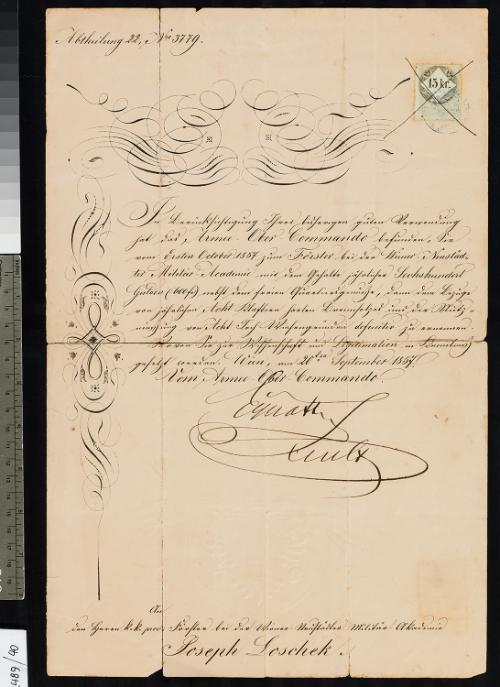 Abtheilung 22, Nro 3779.
15 kr.
In Berücksichtigung Ihrer bisherigen guten Verwendung
hat das Armee-Ober-Commando befunden, Sie
vom Ersten October 1857 zum Förster bei der Wiener-Neustäd-
ter Militär Academie mit dem Gehalte jährlicher Sechshundert
Gulden (600 fl.) nebst dem freien Quartiergenuße, dann dem Bezuge
von jährlichen Acht Klaftern harten Brennholzes und der Nutz-
nießung von Acht Joch definitiv zu ernennen.
Wovon Sie zur Wissenschaft und Legitimation in Kenntniß
gesetzt werden. Wien, am September 1857.
Vom Armee Ober Commando.
An
den Herrn k. k. Förster bei der Wiener Neustädter Militär Akademie
Joseph Loschek.
489/40